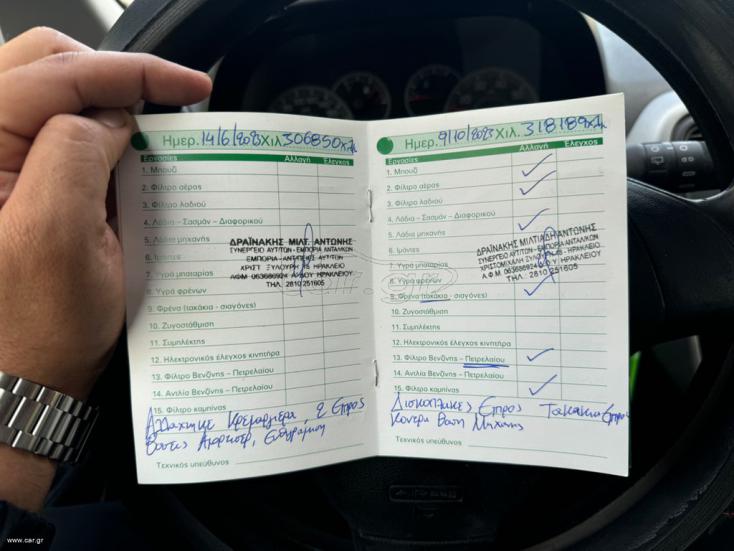 Ημερ. 14/6/2023 Χιλ 306850χλμ
Εργασίες Αλλαγή Έλεγχος
1. Μπουζί
2. Φίλτρο αέρας
3. Φίλτρο λαδιού
4. Λάδια – Σασμάν – Διαφορικού
5. Λάδια μηχανής
6. Ιμάντες
7. Υγρά μπαταρίας
8. Υγρά φρένων
9. Φρένα (τακάκια - σιαγόνες)
10. Ζυγοστάθμιση
11. Συμπλέκτης
12. Ηλεκτρονικός έλεγχος κινητήρα
13. Φίλτρο Βενζίνης – Πετρελαίου
14. Αντλία Βενζίνης – Πετρελαίου
15. Φίλτρο καμπίνας
ΔΡΑΪΝΑΚΗΣ ΜΙΛΤ. ΑΝΤΩΝΗΣ
ΣΥΝΕΡΓΕΙΟ ΑΥΤ/ΤΩΝ - ΕΜΠΟΡΙΑ ΑΝΤΑΛΚΩΝ
ΧΡΙΣΤ ΞΥΛΟΥΡΗ 15 ΗΡΑΚΛΕΙΟ
ΗΡΑΚΛΕΙΟΥ
ΤΗΛ. 2810 251605
2 Εμπρος
Βασεις Αμορτισερ, Ευθυγραμιση
Τεχνικός υπεύθυνος
Ημερ. 9/10/2023 Χιλ. 318189χλμ
Εργασίες Αλλαγή Έλεγχος
1. Μπουζί
2. Φίλτρο αέρας
3. Φίλτρο λαδιού
4. Λάδια – Σασμάν – Διαφορικού
5. Λάδια μηχανής
6. Ιμάντες
7. Υγρά μπαταρίας
8. Υγρά φρένων
9. Φρένα (τακάκια - σιαγόνες)
10. Ζυγοστάθμιση
11. Συμπλέκτης
12. Ηλεκτρονικός έλεγχος κινητήρα
13. Φίλτρο Βενζίνης – Πετρελαίου
14. Αντλία Βενζίνης – Πετρελαίου
15. Φίλτρο καμπίνας
ΔΡΑΪΝΑΚΗΣ ΜΙΛΤΙΑΔΗ ΑΝΤΩΝΗΣ
ΣΥΝΕΡΓΕΙΟ ΑΥΤ/ΤΩΝ ΕΜΠΟΡΙΑ ΑΝΤΑΛΚΩΝ
ΗΡΑΚΛΕΙΟ
ΗΡΑΚΛΕΙΟΥ
ΤΗΛ. 2810 251605
Δισκοπλακες Εμπρος Τακακια Εμπρος
Κοντρα Βαση Μηχανης
Τεχνικός υπεύθυνος
www.car.gr